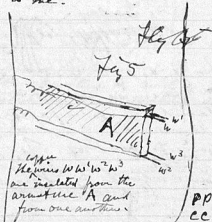 to the
Fig 5
A
w w'
w³
w²
copper
The wires w w' w² w³
are insulated from the
armature A and
from one another.